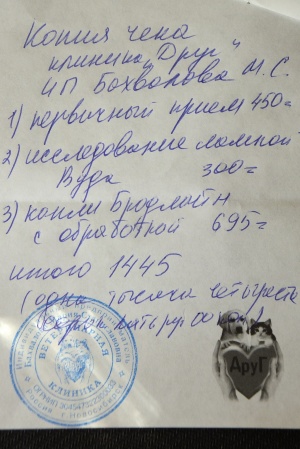 Копия чека
клиника "Друг"
ИП Бахвалова М.С.
1) первичный прием 450=
2) исследование лампой
Вуда 300=
3) капли Бродлайн
с обработкой 695=
итого 1445
(одна тысяча четыреста
сорок пять руб 00 коп)
ВЕТЕРИНАРНАЯ
КЛИНИКА
Россия г. Новосибирск
ДруГ